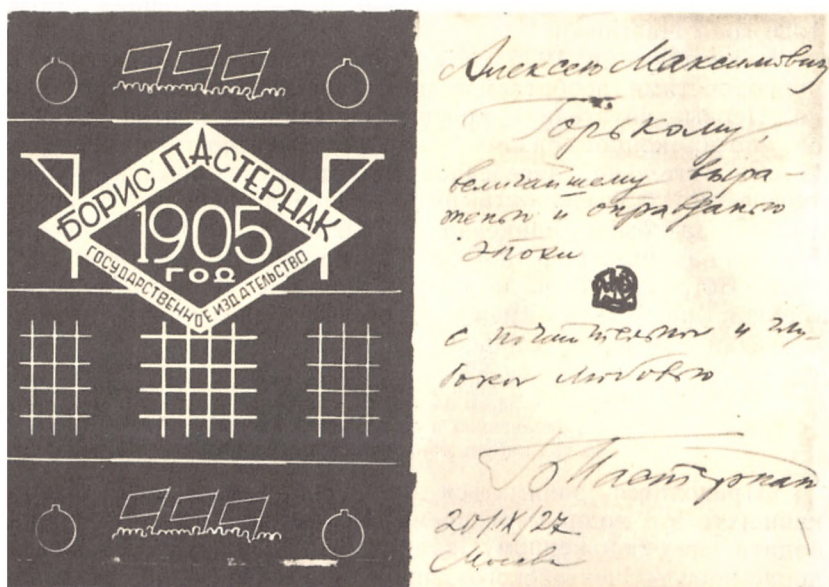 БОРИС ПАСТЕРНАК
1905
ГОД
ГОСУДАРСТВЕННОЕ ИЗДАТЕЛЬСТВО
Алексею Максимовичу
Горькому,
величайшему выра-
женью и оправданью
эпохи
с почтительной и глу-
бокой любовью
Б Пастернак
20/IX/27
Москва